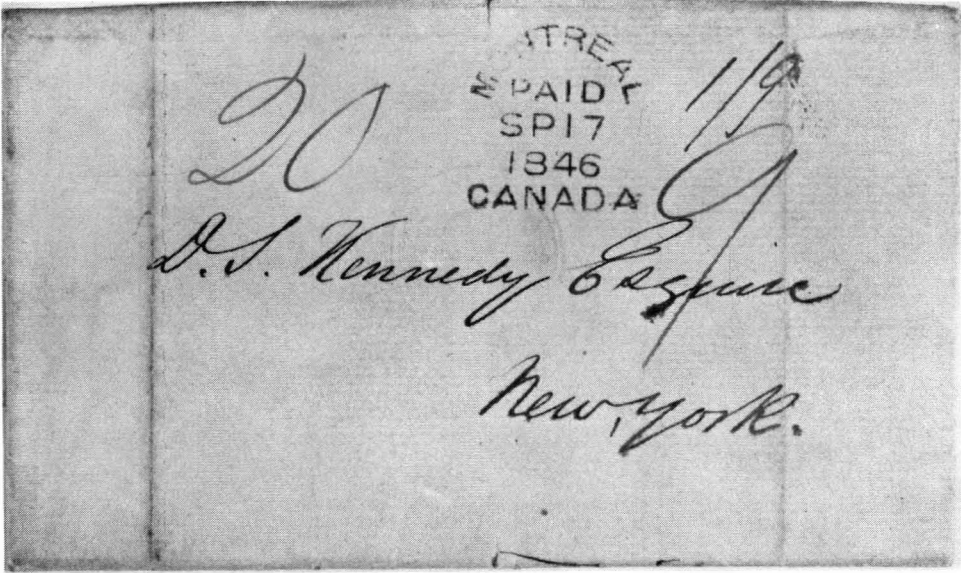 MONTREAL
PAID
SP 17
1846
CANADA
20
1/9
9
D. S. Kennedy Esquire
New York.